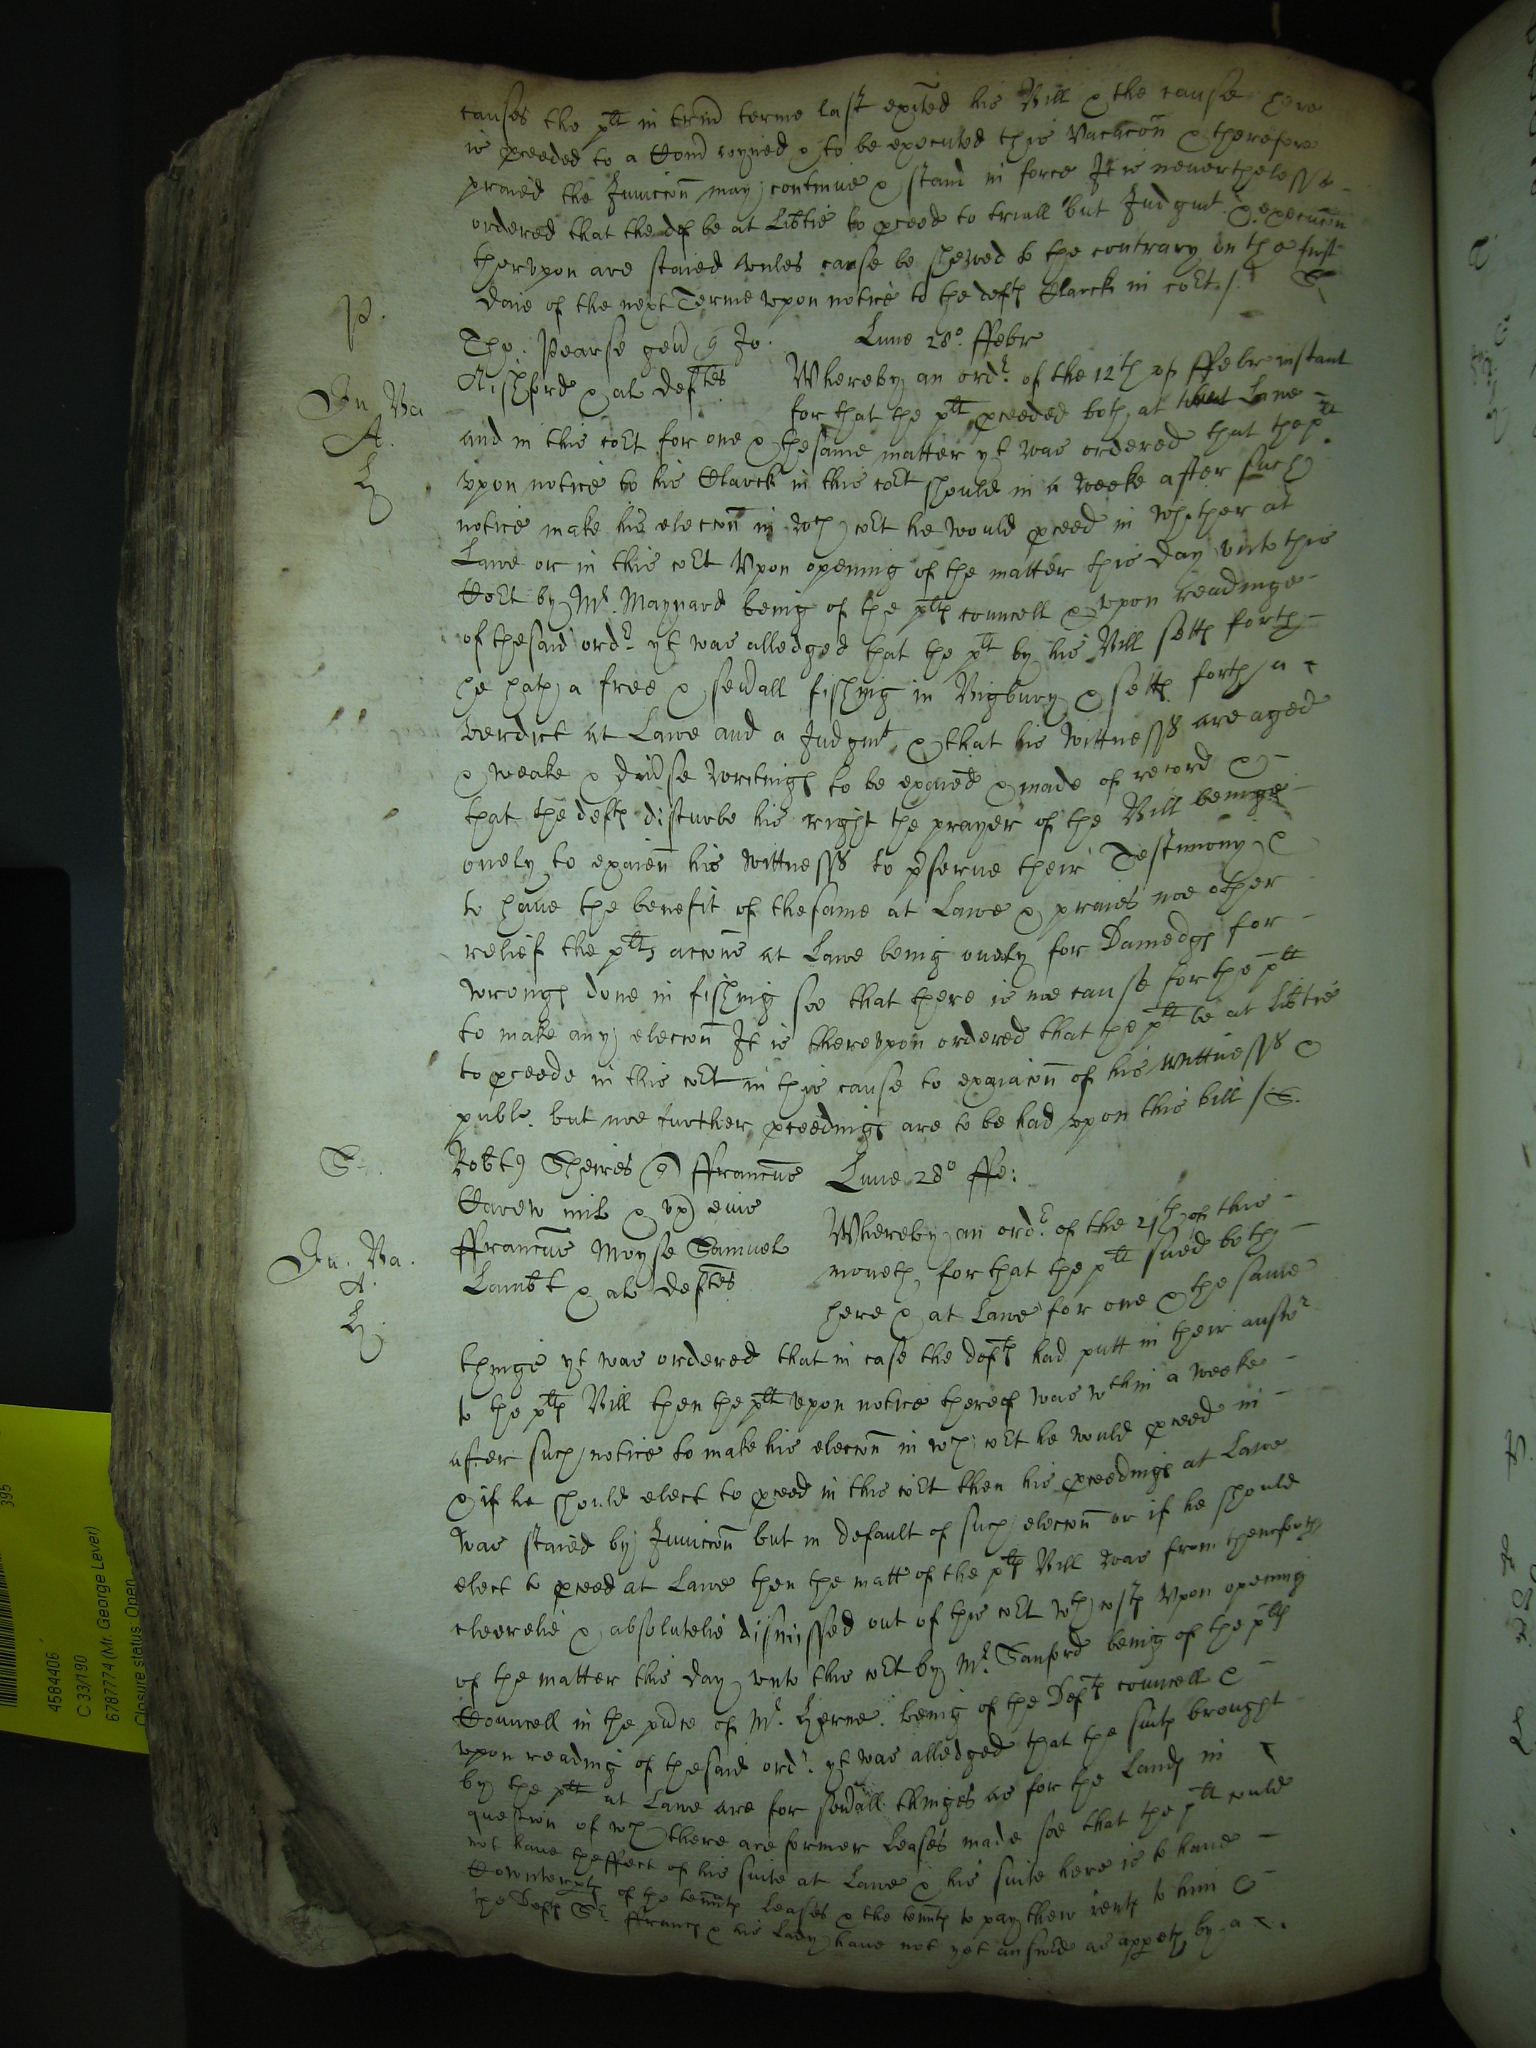 causes the plt in trin terme last exited his Bill & the cause here
is pceeded to a Com̃ ioyned & to be executed this Vacacoñ & therefore
praied the Iniuccoñ may continue & stand in force It is neverthelesse
ordered that the def be at Lib̃tie to pceed to triall but Iudgmt & execucoñ
thervpon are staied vnles cause be shewed to the contrary on the first
daie of the next Terme vpon notice to the defts Clarck in cõrt /. S
P.
Tho. Pearse gen̄ q̃ Jo.
Lune 28o. ffebr
Aishford & al defts
Whereby an ordr. of the 12th of ffebr instant
In. Ba
for that the plt pceeded both at Lawe
A.
and in this cõrt for one & the same matter yt was ordered that the plt
H
vpon notice to his Clarck in this cõrt should in a weeke after such
notice make his eleccoñ in wch cõrt he would pceed in whether at
Lawe or in this cõrt Vpon opening of the matter this day vnto this
Cõrt by Mr. Maynard being of the plts councell & vpon readinge
of the said ordr. yt was alledged that the plt by his Bill setts forth
he hath a free & seũall fishing in Bigbury & setts forth a
verdict at Lawe and a Iudgmt & that his wittnesss are aged
& weake & diũse writings to be exaied & made of record &
that the defts disturbe his right the prayer of the Bill beinge
onely to exaieñ his wittnesss to pserue their Testimony &
to haue the benefit of the same at Lawe & praies noe other
relief the plts accoñs at Lawe being onely for Damedgs for
wrongs done in fishing soe that there is noe cause for the plt
to make any eleccoñ It is therevpon ordered that the plt be at lib̃tie
to pceede in this cõrt in this cause to exaiacoñ of his wittnesss &
publ. but noe further pceedings are to be had vpon this bill / S.
S.
Rob̃t9 Sheires q̃ ffranc̃us
Lune 28o ffe:
Carew mil & vx eius
ffranc̃us Moyse Samuel
Whereby an ordr. of the 21th of this
In. Ba.
Lamb̃t & al defts
moneth for that the plt sued both
A.
here & at Lawe for one & the same
H.
things yt was ordered that in case the defts had putt in their answr
to the plts Bill then the plt vpon notice thereof was wthin a weeke
after such notice to make his eleccoñ in wch cõrt he would pceed in
& if he should elect to pceed in this cõrt then his pceedings at Lawe
was staied by Iniuccoñ but in default of such eleccoñ or if he should
elect to pceed at Lawe then the matt of the plts Bill was from thenceforth
cleerelie & absolutelie dismissed out of this cõrt wth costs Vpon opening
of the matter this day vnto this cõrt by Mr. Sanford being of the plts
Councell in the pñce of Mr. Herne. being of the Defts councell &
vpon reading of the said ordr. yt was alledged that the suits brought
by the plt at Lawe are for seũall things as for the Lands in
question of wch there are former Leases made soe that the plt could
not haue theffect of his suite at Lawe & his suite here is to haue
Counterpts of the tenñts leases & the tenñts to pay their rents to him &
the Defts Sr. ffrancs & his Lady haue not yet answered as appeth by a
4584406
C 33/190
6787774 (Mr. George Lever)
Closure status Open
395